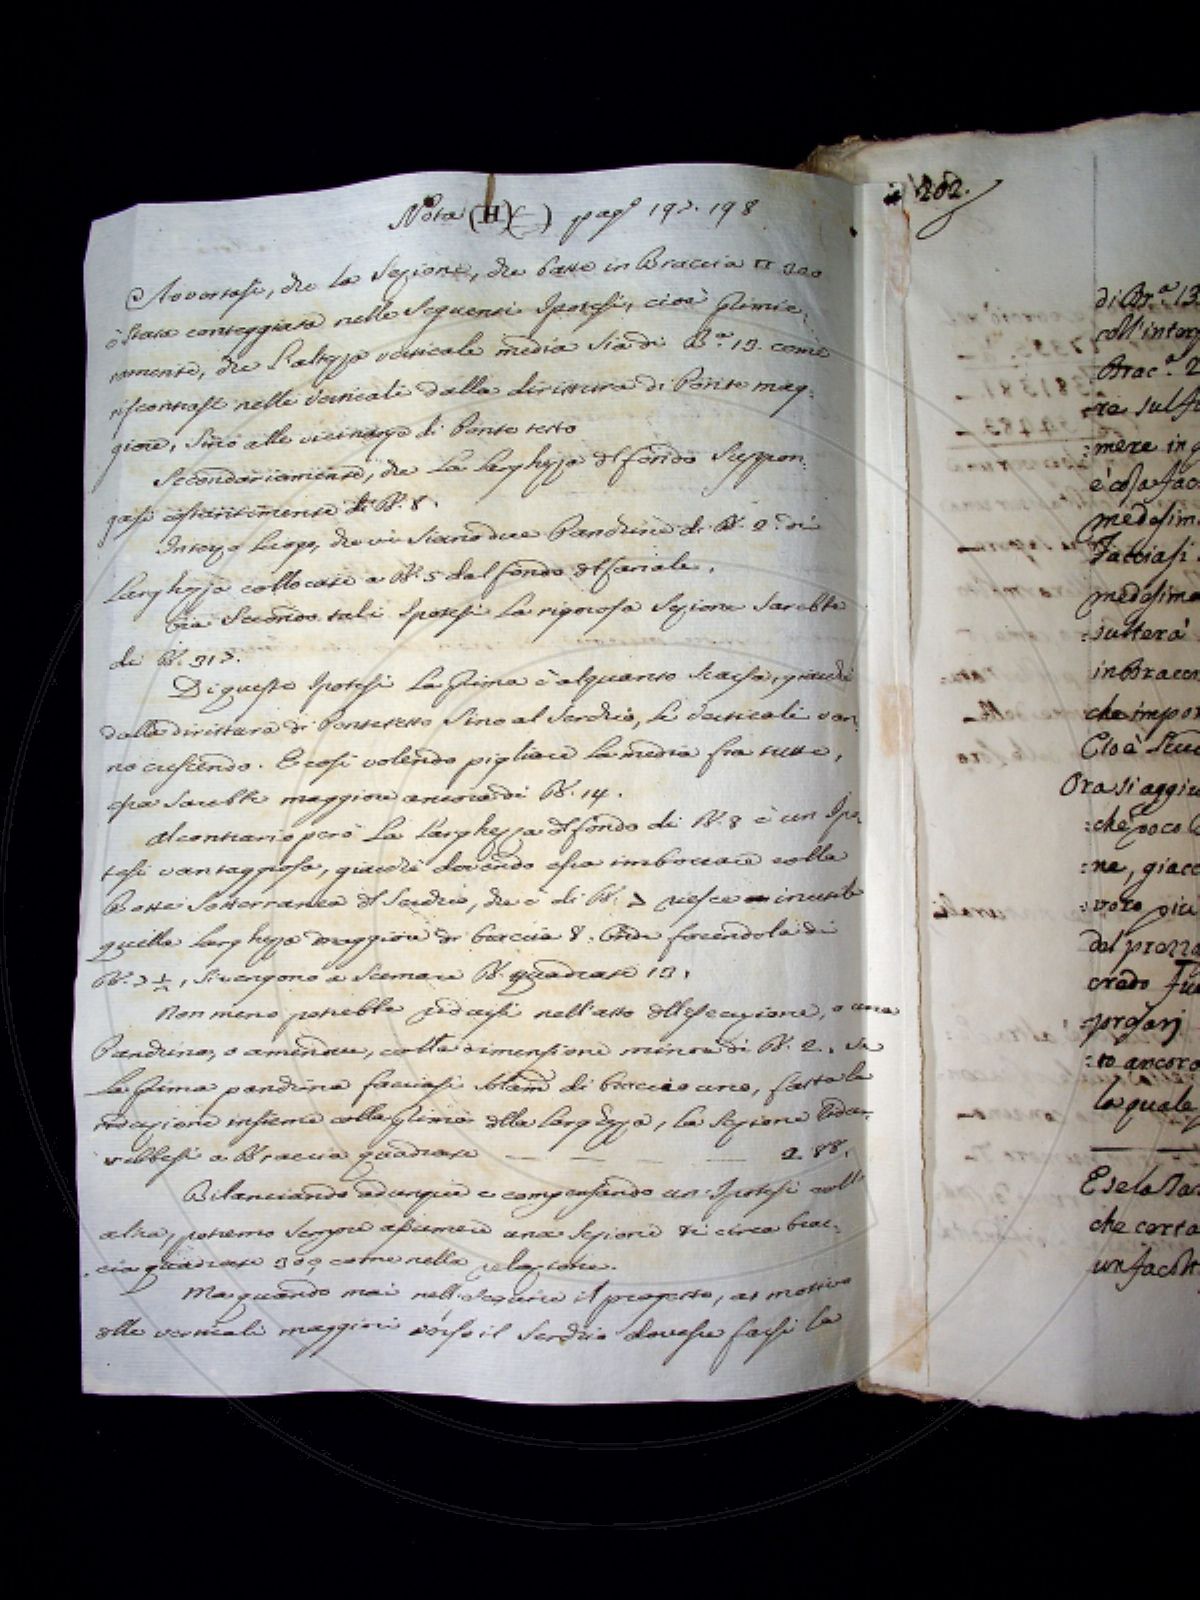 Nota (H) (—) pag.e 197. 198
Avvertasi, che la Sezione, che batte in Braccia □ 300
è stata conteggiata nelle Seguenti Ipotesi, cioè Primie:
ramente, che l'altezza verticale media sia di B.a 13. come
riscontrasi nelle verticali dalla dirittura di Ponte mag:
giore, sino alle vicinanze di Ponte tetto
Secondariamente, che La larghezza del fondo Suppon:
gasi costantemente di B. 8.
In terzo luogo, che vi siano due Panchine di B. 2. di
Larghezza collocate a B. 5 dal fondo del Canale.
Secondo tali Ipotesi La rigorosa Sezione Sarebbe
di B. 317.
Di queste Ipotesi La Prima è alquanto scarsa, giacchè
dalla dirittura di Pontetetto Sino al Serchio, Le verticali van:
no crescendo. E così volendo pigliare La media fra tutte,
essa Sarebbe maggiore ancora di B. 14.
Al contrario però La Larghezza del fondo di B. 8 è un Ipo:
tesi vantaggiosa, giacchè dovendo essa imboccare colla
Botte Sotterranea del Serchio, che è di B. 7 riesce inutile
quella Larghezza maggiore di braccia 8. Onde facendola di
B. 7 ½, si vengono a Scemare B. quadrate 13.
Non meno potrebbe ridursi nell'atto dell'esecuzione, o una
Panchina, o amendue, colla dimensione minore di B. 2. Se
La Prima panchina facciasi Solam.e di braccio uno, fatta la
riduzione insieme colla Prima della larghezza, La Sezione ridur:
rebbesi a Braccia quadrate — — — — 288.
Bilanciando adunque e compensando un Ipotesi coll'
altra, potremo sempre assumere una Sezione di circa brac:
cia quadrate 300, come nella relazione.
Ma quando mai nell'eseguire il progetto, at motivo
delle verticali maggiori verso il Serchio dovesse farsi La
202.
di Br.a 13
coll'inter
Brac.a 2
:re sul f
:mere in q
è cosa fac
medesim
Facciasi
medesima
:sulterà
in Bracci
che impor
Cioè
Ora si aggiu
:che poco
:ne, giacc
:voro più
del prezzo
credo
:prgarj
:to ancora
la quale
E se la
che certa
un facilit